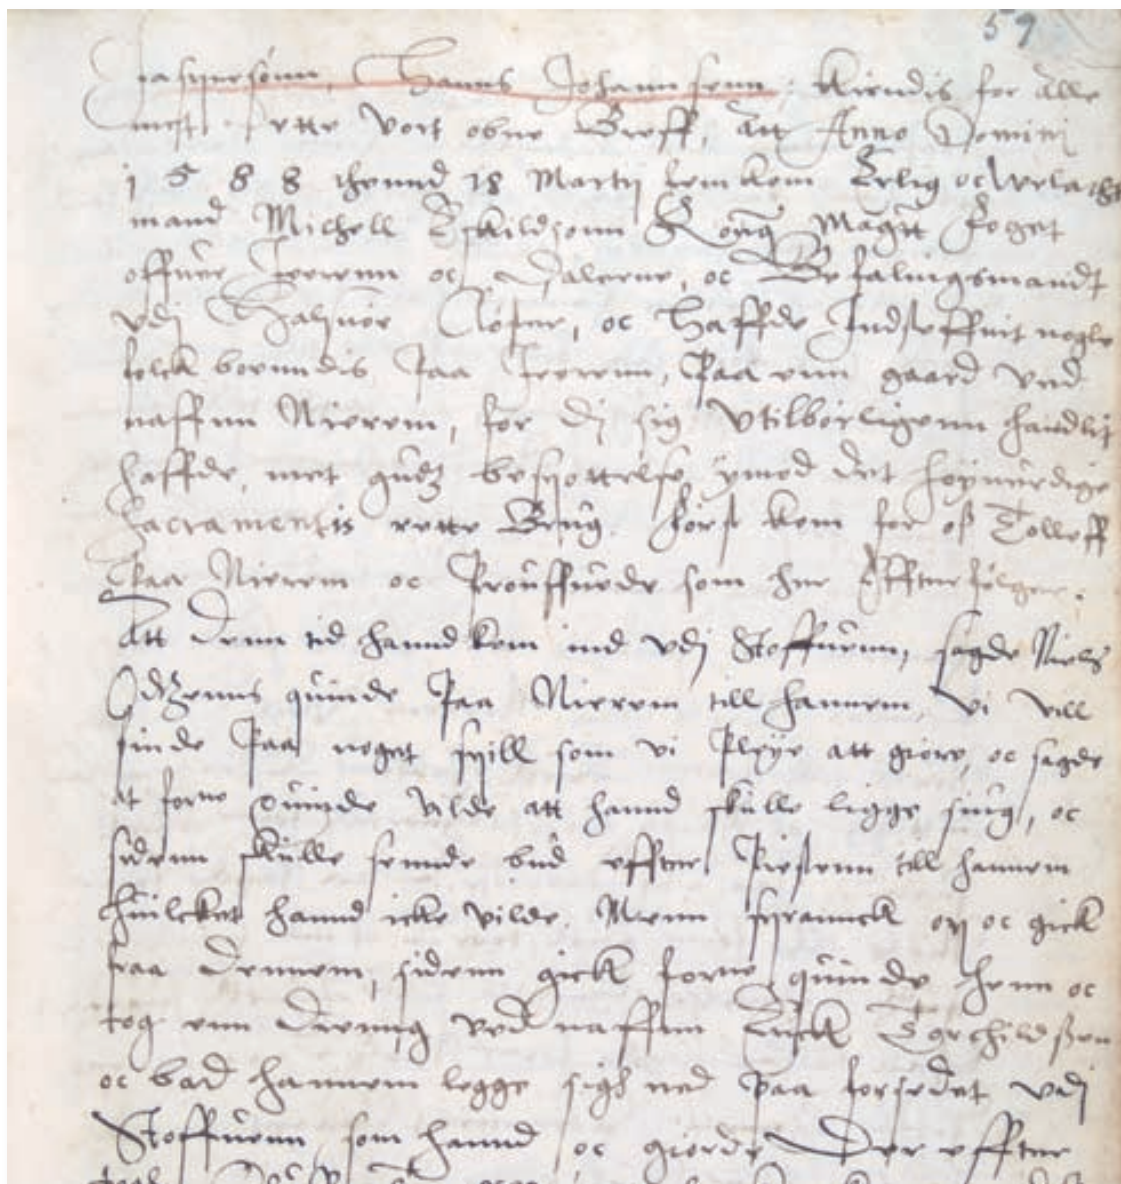 59
Jaspersønn, Hanns Johannsenn: Kiendis for alle
mett dette vort obne Breff, att Anno Domini
1588 thennd 18 Martij komkom Erlig oc Velacht
mand Michell Eskildsonn Kong Magtt Foget
offuer Jeerenn oc Dalerne, oc Befalingsmandt
vdj Halsnøe Closter, oc haffde Indsteffnit nogle
folck boenndis paa Jeerenn, paa enn gaard ved
naffnn Nierem, for dj sig vtilbørligenn handlit
haffde, met gudz bespottelse ymod det høyuerdige
Sacramentis rette Brug. Først kom for oss Tolleff
paa Nierem oc prouffuede som her Effterfølger.
Att denn tid hannd kom ind vdj Stoffuenn, sagde Niels
Odzenns quinde paa Nierem till hannem, vi vill
finde paa noget spill som vi pleye att giøre, oc sagde
at forne quinde vilde att hannd skulle ligge siug, oc
sidenn skulle sennde bud effter Prestenn till hannem
huilcket hannd icke vilde. Menn spranck op oc gick
fraa dennem, sidenn gick forne quinde henn oc
tog enn Dreng ved naffnn Erick Torchildssen
oc bad hannem legge sigh ned paa forsedet vdj
Stoffuenn som hannd oc giorde Der effter